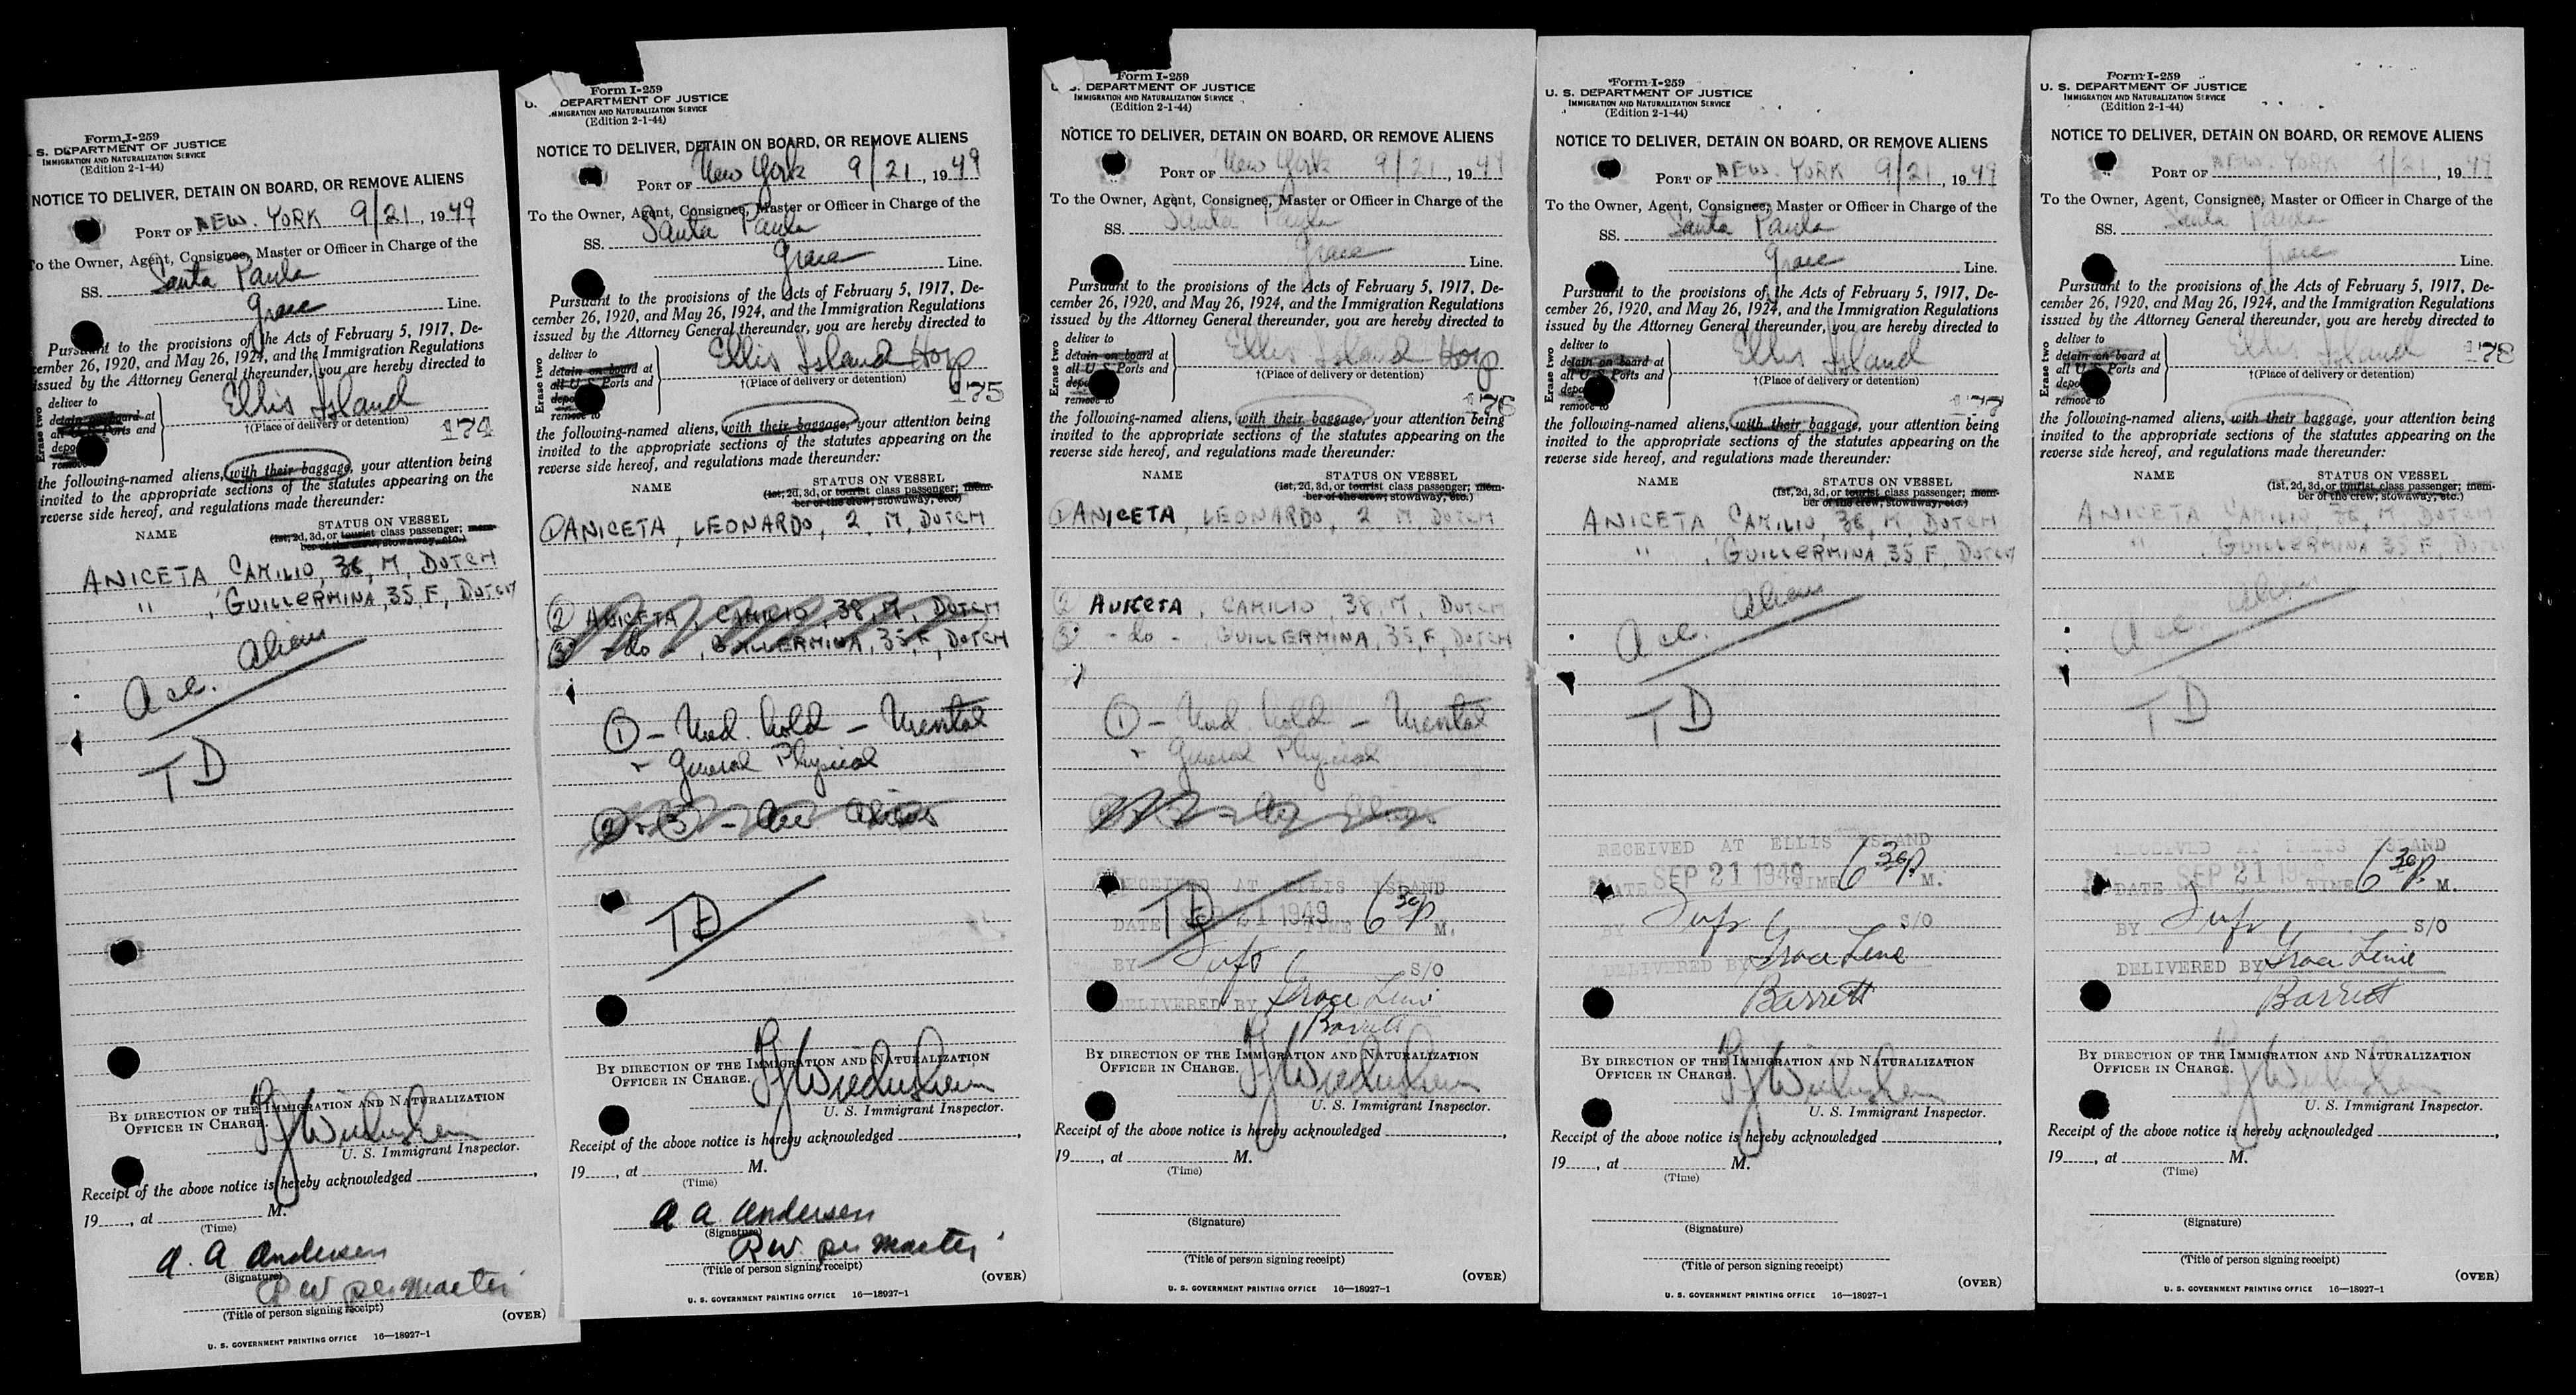 Form I-259
S. DEPARTMENT OF JUSTICE
IMMIGRATION AND NATURALIZATION SERVICE
(Edition 2-1-44)
NOTICE TO DELIVER, DETAIN ON BOARD, OR REMOVE ALIENS
PORT OF NEW. YORK 9/21, 1949
To the Owner, Agent, Consignee, Master or Officer in Charge of the
SS. Santa Paula
Grace Line.
Pursuant to the provisions of the Acts of February 5, 1917, De-
cember 26, 1920, and May 26, 1924, and the Immigration Regulations
issued by the Attorney General thereunder, you are hereby directed to
Erase two
deliver to
detain on board at
all U. S. Ports and
remove to
Ellis Island
†(Place of delivery or detention)
174
the following-named aliens, with their baggage, your attention being
invited to the appropriate sections of the statutes appearing on the
reverse side hereof, and regulations made thereunder:
NAME
STATUS ON VESSEL
(1st, 2d, 3d, or tourist class passenger; mem-
ber of the crew, stowaway, etc.)
ANICETA CAMILIO, 36, M, DUTCH
" , GUILLERMINA, 35, F, DUTCH
Acc. Alien
TD
BY DIRECTION OF THE IMMIGRATION AND NATURALIZATION
OFFICER IN CHARGE.
U. S. Immigrant Inspector.
Receipt of the above notice is hereby acknowledged
19____, at ____ M.
(Time)
A. A Andersen
(Signature)
per Master
(Title of person signing receipt)
(OVER)
U. S. GOVERNMENT PRINTING OFFICE 16—18927-1
Form I-259
U. DEPARTMENT OF JUSTICE
IMMIGRATION AND NATURALIZATION SERVICE
(Edition 2-1-44)
NOTICE TO DELIVER, DETAIN ON BOARD, OR REMOVE ALIENS
PORT OF New York 9/21, 1949
To the Owner, Agent, Consignee, Master or Officer in Charge of the
SS. Santa Paula
Grace Line.
Pursuant to the provisions of the Acts of February 5, 1917, De-
cember 26, 1920, and May 26, 1924, and the Immigration Regulations
issued by the Attorney General thereunder, you are hereby directed to
Erase two
deliver to
detain on board at
all U. S. Ports and
remove to
Ellis Island Hosp
†(Place of delivery or detention)
175
the following-named aliens, with their baggage, your attention being
invited to the appropriate sections of the statutes appearing on the
reverse side hereof, and regulations made thereunder:
NAME
STATUS ON VESSEL
(1st, 2d, 3d, or tourist class passenger; mem-
ber of the crew, stowaway, etc.)
① ANICETA, LEONARDO, 2, M, DUTCH
② ANICETA, CAMILIO, 38, M, DUTCH
③ - do - , GUILLERMINA, 35, F, DUTCH
① - Med. hold - Mental
+ General Physical
② + ③ - Acc Alien
TD
BY DIRECTION OF THE IMMIGRATION AND NATURALIZATION
OFFICER IN CHARGE.
U. S. Immigrant Inspector.
Receipt of the above notice is hereby acknowledged
19____, at ____ M.
(Time)
A A Andersen
(Signature)
per Master
(Title of person signing receipt)
(OVER)
U. S. GOVERNMENT PRINTING OFFICE 16—18927-1
Form I-259
U. S. DEPARTMENT OF JUSTICE
IMMIGRATION AND NATURALIZATION SERVICE
(Edition 2-1-44)
NOTICE TO DELIVER, DETAIN ON BOARD, OR REMOVE ALIENS
PORT OF New York 9/21, 1949
To the Owner, Agent, Consignee, Master or Officer in Charge of the
SS. Santa Paula
Grace Line.
Pursuant to the provisions of the Acts of February 5, 1917, De-
cember 26, 1920, and May 26, 1924, and the Immigration Regulations
issued by the Attorney General thereunder, you are hereby directed to
Erase two
deliver to
detain on board at
all U. S. Ports and
remove to
Ellis Island Hosp
†(Place of delivery or detention)
176
the following-named aliens, with their baggage, your attention being
invited to the appropriate sections of the statutes appearing on the
reverse side hereof, and regulations made thereunder:
NAME
STATUS ON VESSEL
(1st, 2d, 3d, or tourist class passenger; mem-
ber of the crew, stowaway, etc.)
① ANICETA, LEONARDO, 2 M DUTCH
② ANICETA, CAMILIO, 38, M, DUTCH
③ - do - , GUILLERMINA, 35, F, DUTCH
① - Med. hold - Mental
+ General Physical
TD
RECEIVED AT ELLIS ISLAND
DATE SEP 21 1949 TIME 6 30 P M.
BY S/O
DELIVERED BY Grace Line
Barrett
BY DIRECTION OF THE IMMIGRATION AND NATURALIZATION
OFFICER IN CHARGE.
U. S. Immigrant Inspector.
Receipt of the above notice is hereby acknowledged
19____, at ____ M.
(Time)
(Signature)
(Title of person signing receipt)
(OVER)
U. S. GOVERNMENT PRINTING OFFICE 16—18927-1
Form I-259
U. S. DEPARTMENT OF JUSTICE
IMMIGRATION AND NATURALIZATION SERVICE
(Edition 2-1-44)
NOTICE TO DELIVER, DETAIN ON BOARD, OR REMOVE ALIENS
PORT OF NEW. YORK 9/21, 1949
To the Owner, Agent, Consignee, Master or Officer in Charge of the
SS. Santa Paula
Grace Line.
Pursuant to the provisions of the Acts of February 5, 1917, De-
cember 26, 1920, and May 26, 1924, and the Immigration Regulations
issued by the Attorney General thereunder, you are hereby directed to
Erase two
deliver to
detain on board at
all U. S. Ports and
remove to
Ellis Island
†(Place of delivery or detention)
177
the following-named aliens, with their baggage, your attention being
invited to the appropriate sections of the statutes appearing on the
reverse side hereof, and regulations made thereunder:
NAME
STATUS ON VESSEL
(1st, 2d, 3d, or tourist class passenger; mem-
ber of the crew, stowaway, etc.)
ANICETA CAMILIO, 36, M, DUTCH
" , GUILLERMINA, 35 F, DUTCH
Acc. Alien
TD
RECEIVED AT ELLIS ISLAND
DATE SEP 21 1949 TIME 6 30 P. M.
BY S/O
DELIVERED BY Grace Line
Barrett
BY DIRECTION OF THE IMMIGRATION AND NATURALIZATION
OFFICER IN CHARGE.
U. S. Immigrant Inspector.
Receipt of the above notice is hereby acknowledged
19____, at ____ M.
(Time)
(Signature)
(Title of person signing receipt)
(OVER)
U. S. GOVERNMENT PRINTING OFFICE 16—18927-1
Form I-259
U. S. DEPARTMENT OF JUSTICE
IMMIGRATION AND NATURALIZATION SERVICE
(Edition 2-1-44)
NOTICE TO DELIVER, DETAIN ON BOARD, OR REMOVE ALIENS
PORT OF NEW. YORK 9/21, 1949
To the Owner, Agent, Consignee, Master or Officer in Charge of the
SS. Santa Paula
Grace Line.
Pursuant to the provisions of the Acts of February 5, 1917, De-
cember 26, 1920, and May 26, 1924, and the Immigration Regulations
issued by the Attorney General thereunder, you are hereby directed to
Erase two
deliver to
detain on board at
all U. S. Ports and
remove to
Ellis Island
†(Place of delivery or detention)
178
the following-named aliens, with their baggage, your attention being
invited to the appropriate sections of the statutes appearing on the
reverse side hereof, and regulations made thereunder:
NAME
STATUS ON VESSEL
(1st, 2d, 3d, or tourist class passenger; mem-
ber of the crew, stowaway, etc.)
ANICETA CAMILIO 36, M DUTCH
" , GUILLERMINA 35 F, DUTCH
Acc. Alien
TD
RECEIVED AT ELLIS ISLAND
DATE SEP 21 19 TIME 6 30 P. M.
BY S/O
DELIVERED BY Grace Line
Barrett
BY DIRECTION OF THE IMMIGRATION AND NATURALIZATION
OFFICER IN CHARGE.
U. S. Immigrant Inspector.
Receipt of the above notice is hereby acknowledged
19____, at ____ M.
(Time)
(Signature)
(Title of person signing receipt)
(OVER)
U. S. GOVERNMENT PRINTING OFFICE 16—18927-1